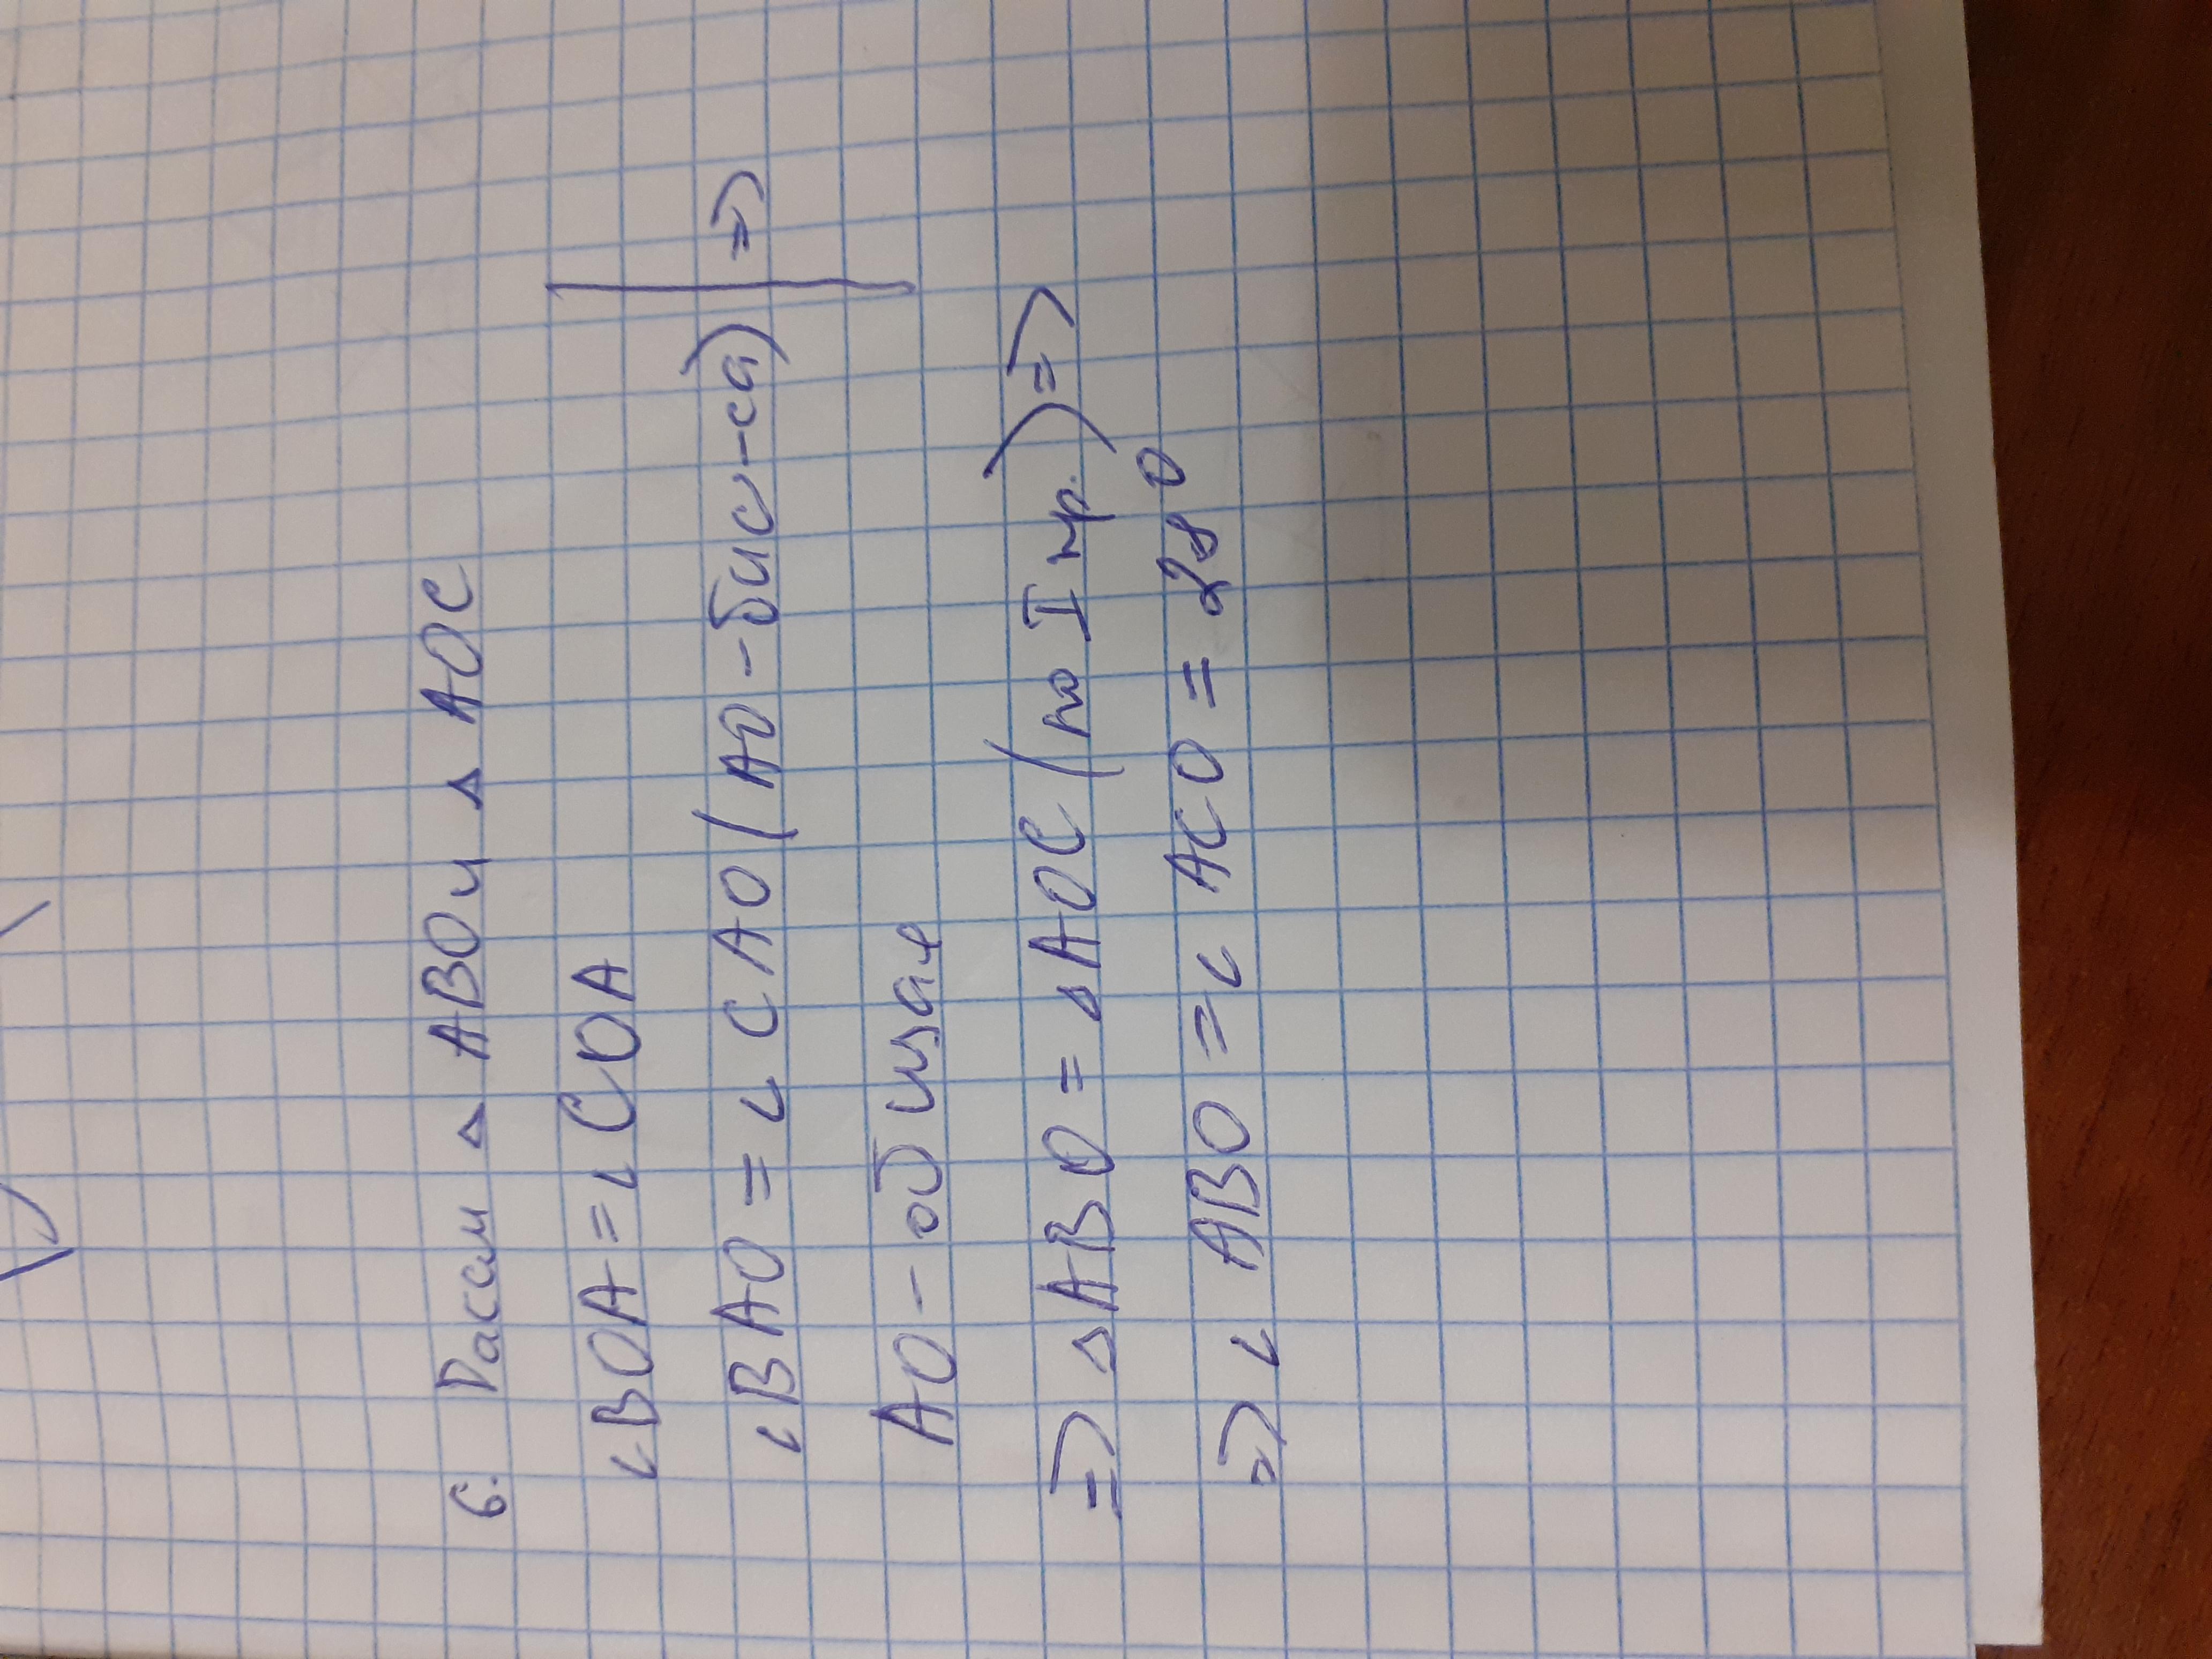 6. Рассм △ ABO и △ AOC
∠BOA = ∠COA
∠BAO = ∠CAO (AO - бис-са) =>
AO - общая
=> △ABO = △AOC (по I пр.) =>
=> ∠ABO = ∠ACO = 28°